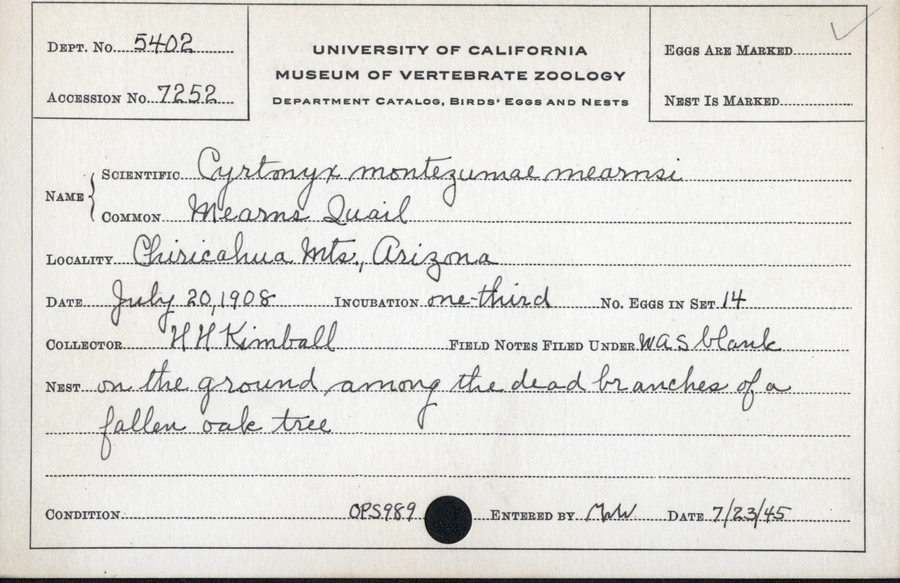 DEPT. No. 5402
ACCESSION No. 7252
UNIVERSITY OF CALIFORNIA
MUSEUM OF VERTEBRATE ZOOLOGY
DEPARTMENT CATALOG, BIRDS' EGGS AND NESTS
EGGS ARE MARKED
NEST IS MARKED
NAME
SCIENTIFIC Cyrtonyx montezumae mearnsi
COMMON Mearns Quail
LOCALITY Chiricahua Mts., Arizona
DATE July 20, 1908 INCUBATION one-third No. EGGS IN SET 14
COLLECTOR H H Kimball FIELD NOTES FILED UNDER was blank
NEST on the ground among the dead branches of a
fallen oak tree
CONDITION OPS989 ENTERED BY DATE 7/23/45